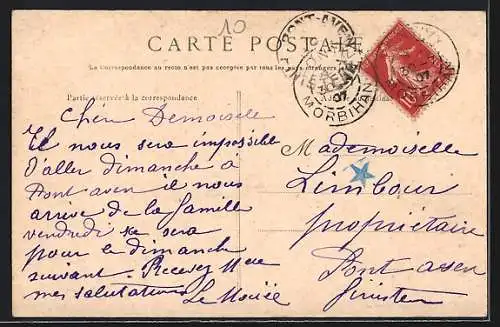 10
CARTE POSTALE
La Correspondance au recto n'est pas acceptée par tous les pays étrangers
Partie réservée à la correspondance
Chère Demoiselle
Il nous sera impossible
d'aller dimanche à
Pont aven il nous
arrive de la famille
vendredi se sera
pour le dimanche
suivant. Recevez
mes salutations
Le
Mademoiselle
Limbour
propriétaire
Pont aven
finistere
PONT-AVEN
MORBIHAN
07
10
07